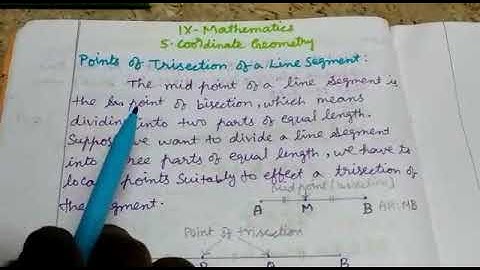 IX-Mathematics
5. Coordinate Geometry
Points of Trisection of a Line Segment:
The mid point of a line segment is
the point of bisection, which means
dividing into two parts of equal length.
Suppose we want to divide a line segment
into three parts of equal length, we have to
locate points suitably to effect a trisection of
the segment.
mid point (bisection)
A M B AM=MB
Point of trisection
B